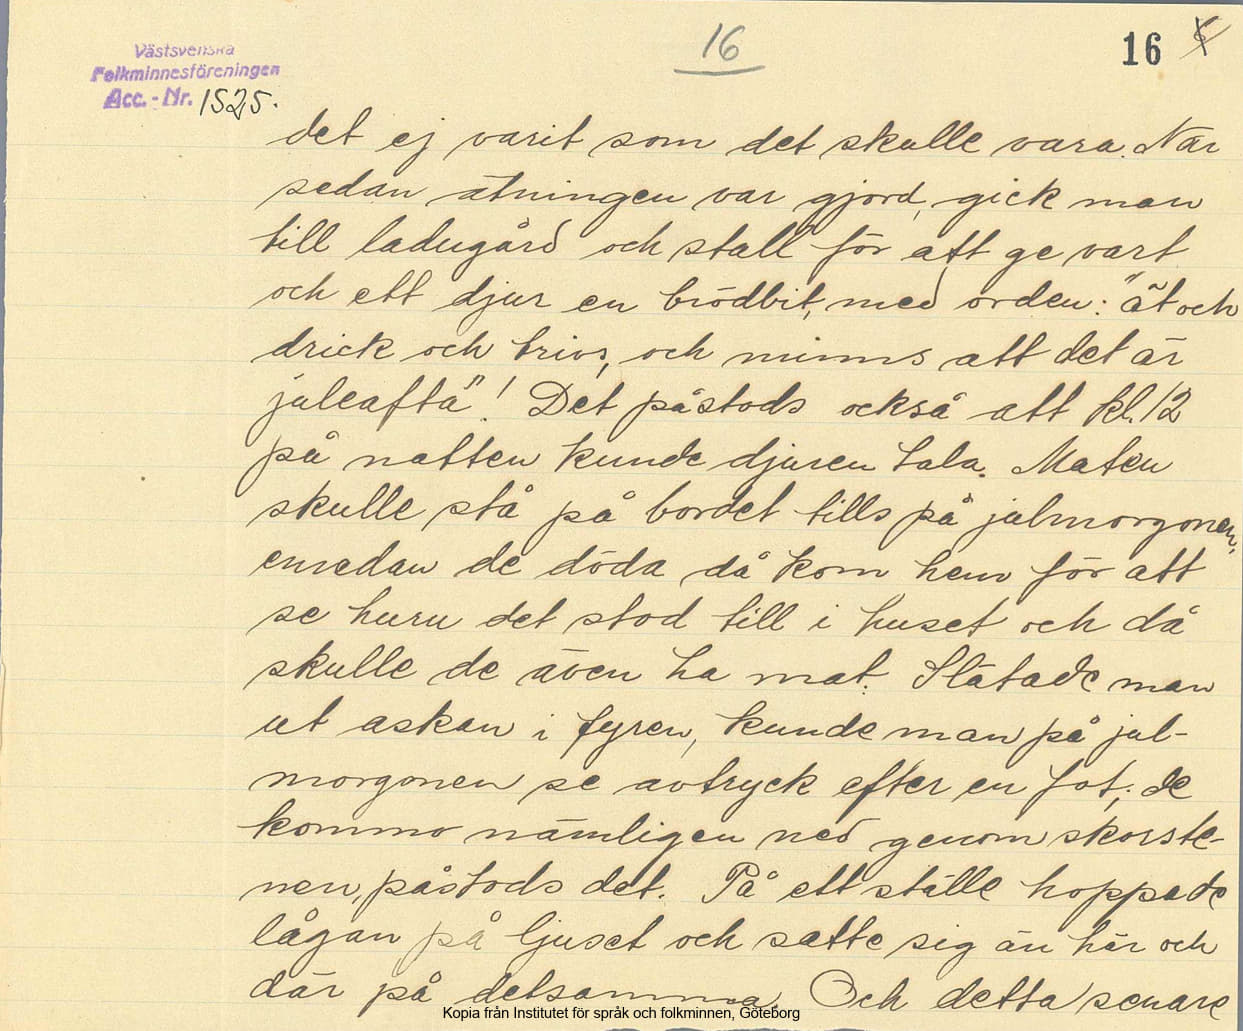 16
16
Västsvenska
Folkminnesföreningen
Acc.-Nr. 1525.
det ej varit som det skulle vara. När
sedan ätningen var gjord, gick man
till ladugård och stall för att ge vart
och ett djur en brödbit, med orden: "ät och
drick och trivs, och minns att det är
juleafta"! Det påstods också att kl. 12
på natten kunde djuren tala. Maten
skulle stå på bordet tills på julmorgonen,
emedan de döda då kom hem för att
se huru det stod till i huset och då
skulle de även ha mat. Slätade man
ut askan i fyren, kunde man på jul-
morgonen se avtryck efter en fot; de
kommo nämligen ned genom skorste-
nen, påstods det. På ett ställe hoppade
lågan på ljuset och satte sig än här och
där på detsamma. Och detta senare
Kopia från Institutet för språk och folkminnen, Göteborg